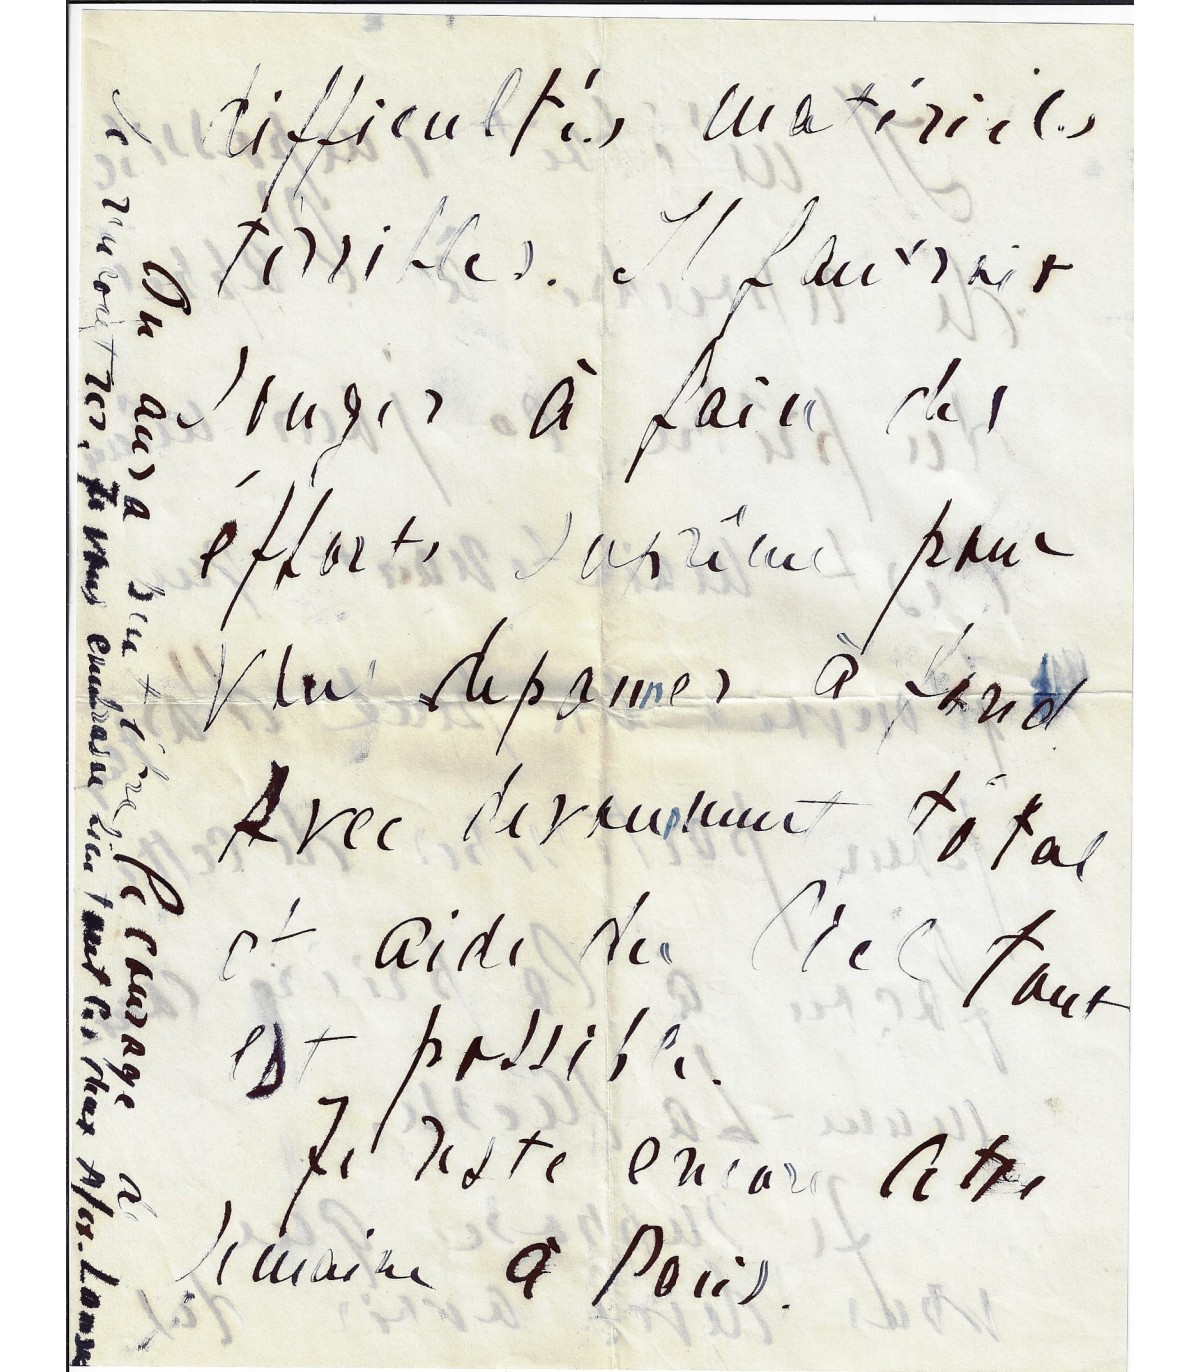 difficultés matériels
terribles. Il faudrait
songer à faire des
éfforts suprême pour
vous dépanner à fond
Avec devouement total
et aide du Ciel tout
est possible.
Je reste encore cette
semaine à Paris.
On aura peut être le courage de
se rencontrer. Je vous embrasse bien tous les deux Alex.